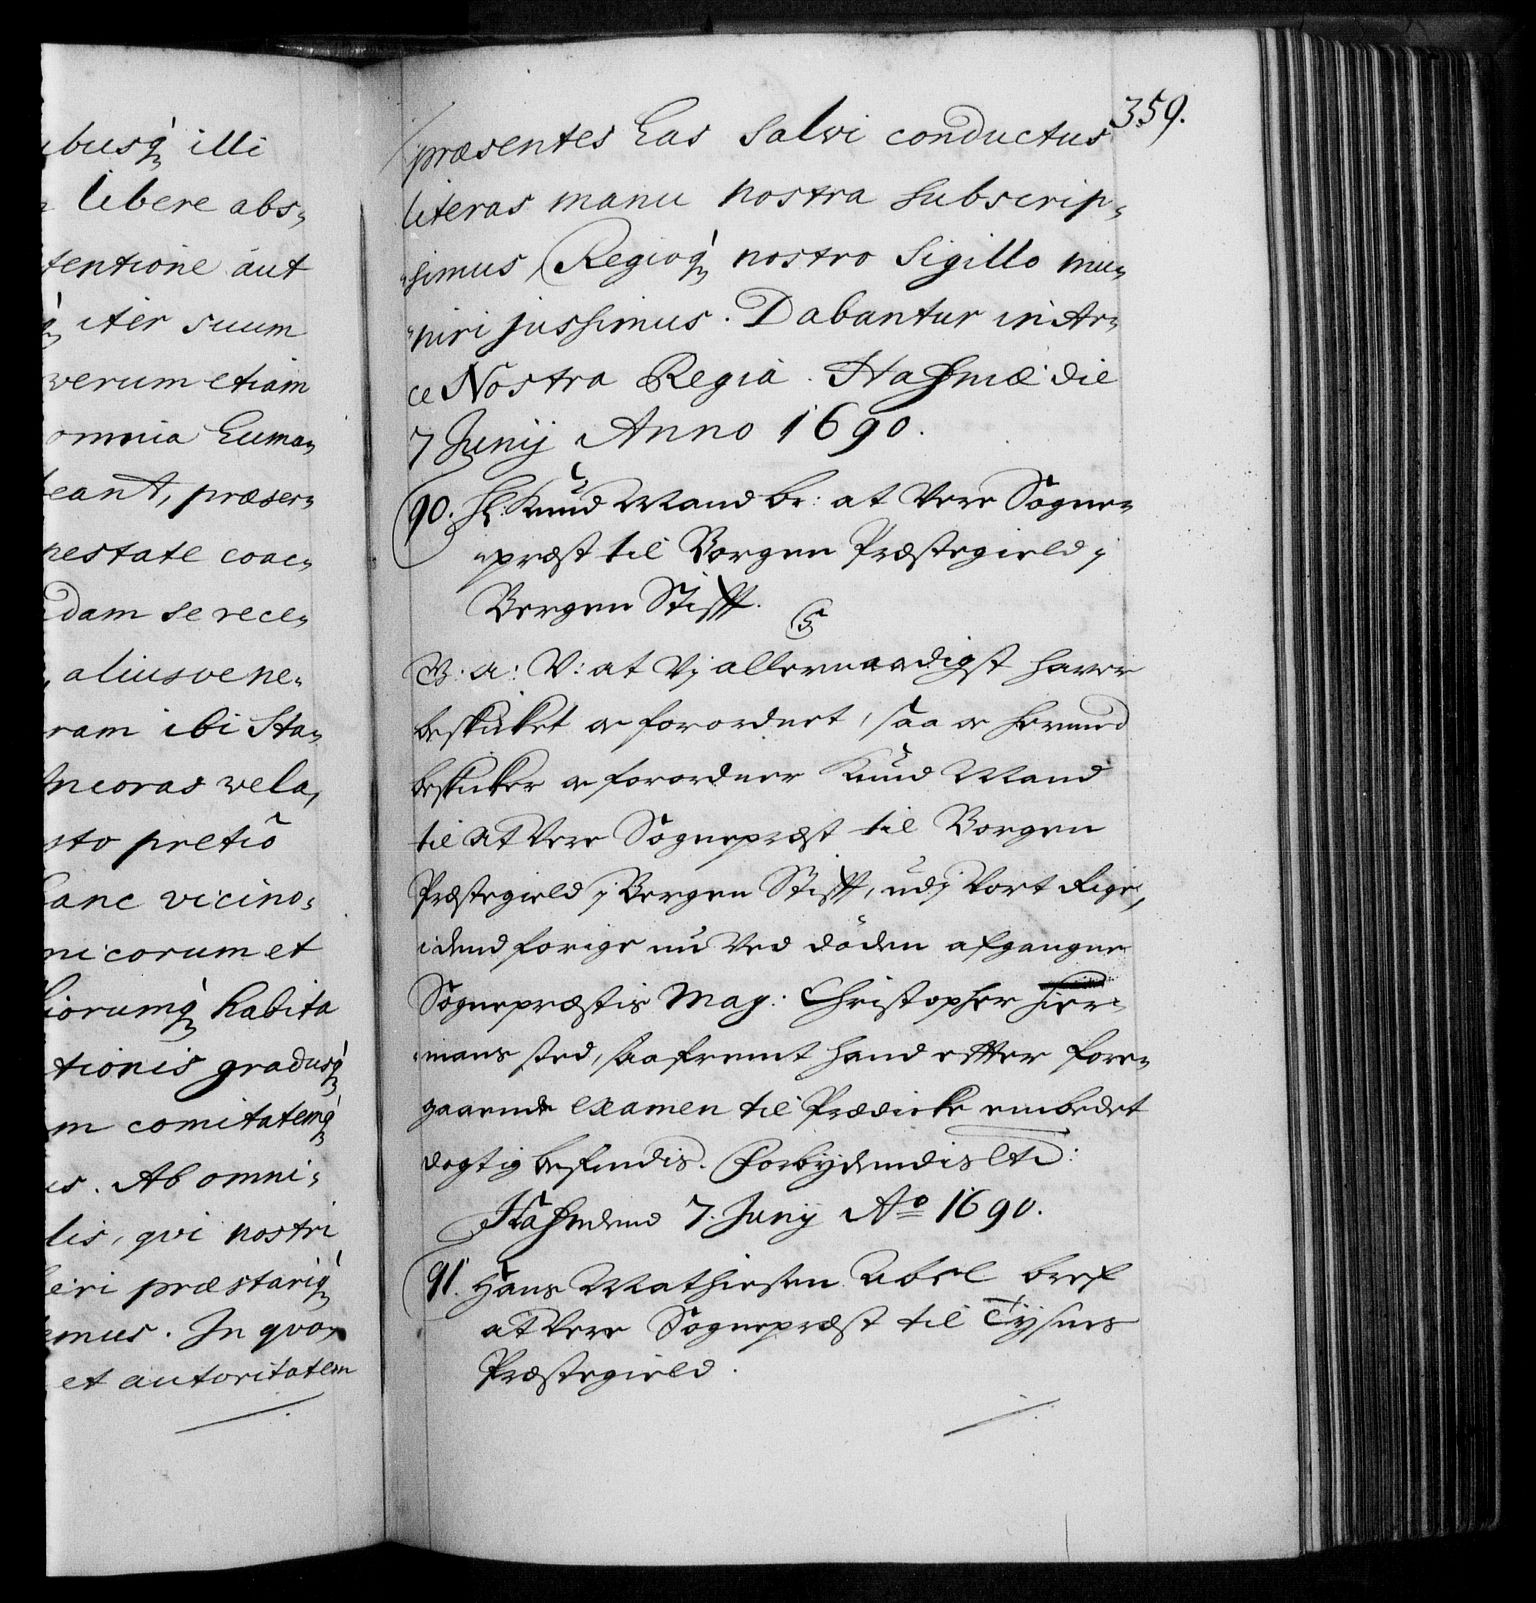 ubusq illi
libere abs-
tentione aut
q iter suum
verum etiam
omnia huma-
beant, præser-
pestate coac-
dam se rece-
aliusvene-
ram ibi Sta-
Ancoras vela,
sto pretio
hanc vicino-
nicorum et
horumq habita
tionis gradusq
m comitatemq
is. Ab omni-
lis, qvi nostri
heri præstariq
mus. In qvor
et autoritatem
359.
præsentes has Salvi conductus
literas manu nostra subscrip-
simus, Regioq nostro Sigillo mu-
niri jussimus. Dabantur in Ar-
ce Nostra Regia Hafniæ die
7 Junij Anno 1690.
90. Hr. Knud Wand br: at Vere Sogne-
præst til Borgen Præstegield j
Bergen Stifft.
C5
G. A: V: at Vj allernaadigst haver
beskicket oc forordnet, saa oc hermed
beskicker oc forordner Knud Wand
til at Vere Sognepræst til Borgen
Præstegield j Bergen Stifft, udj Vort Rige,
i dend forige nu Ved döden afgangne
Sognepræstis Mag: Christopher Hier-
mans sted, saafremt hand effter fore-
gaaende examen til Prædicke embedet
dygtig befindis. Forbydendis etc:
Hafn dend 7. Junij Ao 1690.
91. Hans Mathiesen Abel bref
at Vere Sognepræst til Tysnes
Præstegield.